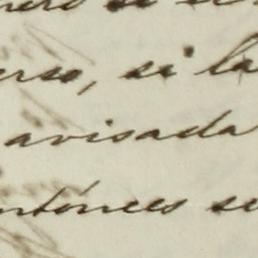 si
erso, si la
avisada
entónces se